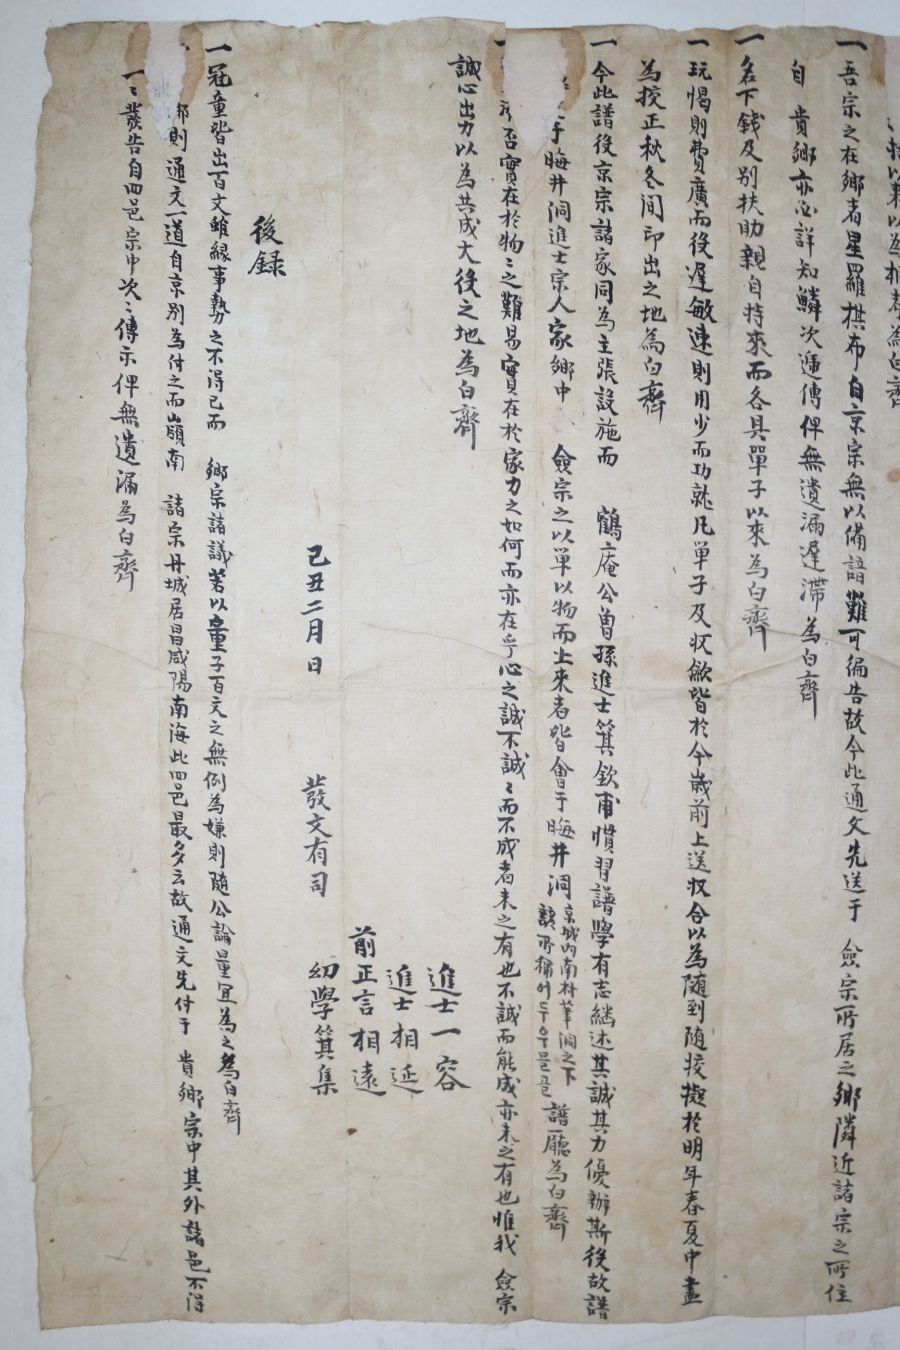 以來以為相考為白齊
一吾宗之在鄕者星羅棋布自京宗無以備諳難可徧告故今此通文先送于 僉宗所居之鄕隣近諸宗之所住
自 貴鄕亦必詳知鱗次遞傳俾無遺漏遲滯為白齊
一名下錢及別扶助親自持來而各具單子以來為白齊
一玩愒則費廣而役遲敏速則用少而功就凡單子及収斂皆於今歲前上送収合以為隨到隨挍擬於明年春夏中盡
為挍正秋冬間印出之地為白齊
一今此譜役京宗諸家同為主張設施而 鶴庵公曾孫進士箕欽甫慣習譜學有志継述其誠其力優辦斯役故譜
于晦井洞進士宗人家鄕中 僉宗之以單以物而上來者皆會于晦井洞 京城內南村筆洞之下 譜廳為白齊
否實在於物〻之難易實在於家力之如何而亦在乎心之誠不誠〻而不成者未之有也不誠而能成亦未之有也惟我 僉宗
誠心出力以為共成大役之地為白齊
進士一容
進士相延
前正言相遠
幼學箕集
己丑二月日 發文有司
後録
一冠童皆出百文雖緣事勢之不得已而 鄕宗諸議若以童子百文之無例為嫌則隨公論量宜為之為白齊
鄕則通文一道自京別為付之而嶺南 諸宗丹城居昌咸陽南海此四邑最多云故通文先付于 貴鄕宗中其外諸邑不得
一〻發告自四邑宗中次〻傳示俾無遺漏為白齊